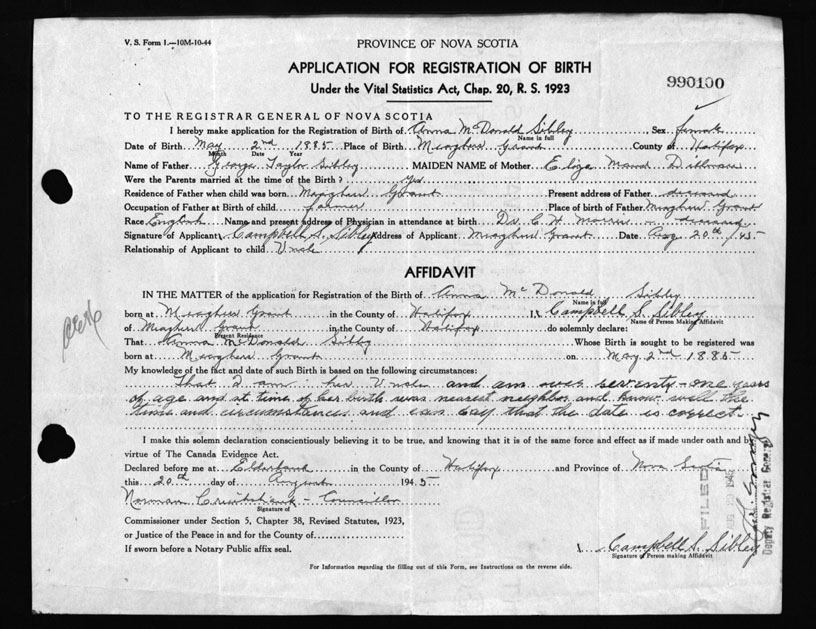 V. S. Form 1.—10M-10-44
PROVINCE OF NOVA SCOTIA
APPLICATION FOR REGISTRATION OF BIRTH
Under the Vital Statistics Act, Chap. 20, R. S. 1923
990100
TO THE REGISTRAR GENERAL OF NOVA SCOTIA
I hereby make application for the Registration of Birth of Anna McDonald Sibley Sex female
Name in full
Date of Birth May 2nd 1885 Place of Birth Meaghers Grant County of Halifax
Month Date Year
Name of Father George Taylor Sibley MAIDEN NAME of Mother Eliza Maud Dillman
Were the Parents married at the time of the Birth? Yes
Residence of Father when child was born Meaghers Grant Present address of Father deceased
Occupation of Father at Birth of child farmer Place of birth of Father Meaghers Grant
Race English Name and present address of Physician in attendance at birth Dr. C H Morris - deceased
Signature of Applicant Campbell S. Sibley Address of Applicant Meaghers Grant Date Aug 20th /45
Relationship of Applicant to child Uncle
AFFIDAVIT
IN THE MATTER of the application for Registration of the Birth of Anna McDonald Sibley
Name in full
born at Meaghers Grant in the County of Halifax I, Campbell S. Sibley
Name of Person Making Affidavit
of Meaghers Grant in the County of Halifax do solemnly declare:
Present Residence
That Anna McDonald Sibley Whose Birth is sought to be registered was
born at Meaghers Grant on May 2nd 1885
My knowledge of the fact and date of such Birth is based on the following circumstances:
That I am her Uncle and am over seventy-one years
of age and at time of her birth was nearest neighbor and know well the
time and circumstances and can say that the date is correct.
I make this solemn declaration conscientiously believing it to be true, and knowing that it is of the same force and effect as if made under oath and by
virtue of The Canada Evidence Act.
Declared before me at Elderbank in the County of Halifax and Province of Nova Scotia
this 20th day of August 1945
Norman Cruikshank - Councillor
Signature of
Commissioner under Section 5, Chapter 38, Revised Statutes, 1923,
or Justice of the Peace in and for the County of
If sworn before a Notary Public affix seal.
Campbell S. Sibley
Signature of Person making Affidavit
FILED
Deputy Registrar General
For Information regarding the filling out of this Form, see Instructions on the reverse side.